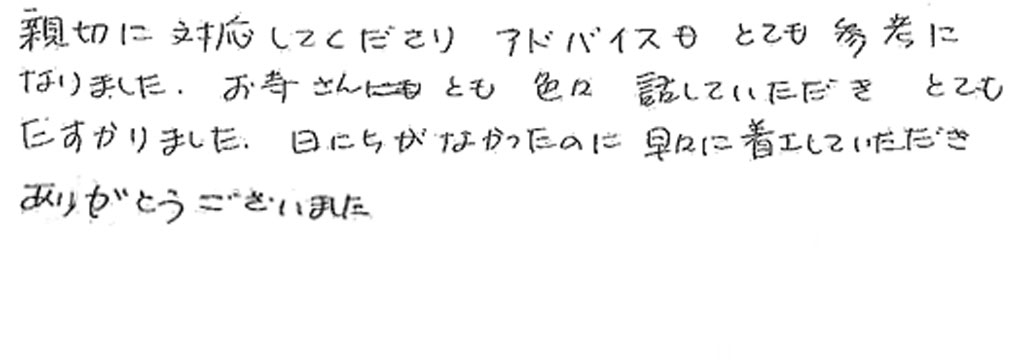 親切に対応してくださり アドバイスも とても 参考に
なりました. お寺さんとも 色々 話していただき とても
たすかりました. 日にちがなかったのに 早々に着工していただき
ありがとうございました